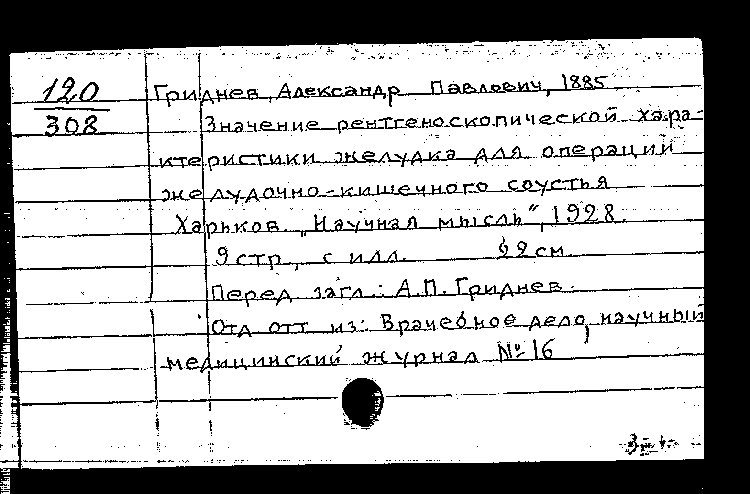 120
308
Гриднев, Александр Павлович, 1885
Значение рентгеноскопической хара-
ктеристики желудка для операций
желудочно-кишечного соустья
Харьков. „Научная мысль", 1928.
9 стр., с илл. см
Перед загл.: А.П. Гриднев.
Отд отт из: Врачебное дело, научный
медицинский журнал № 16